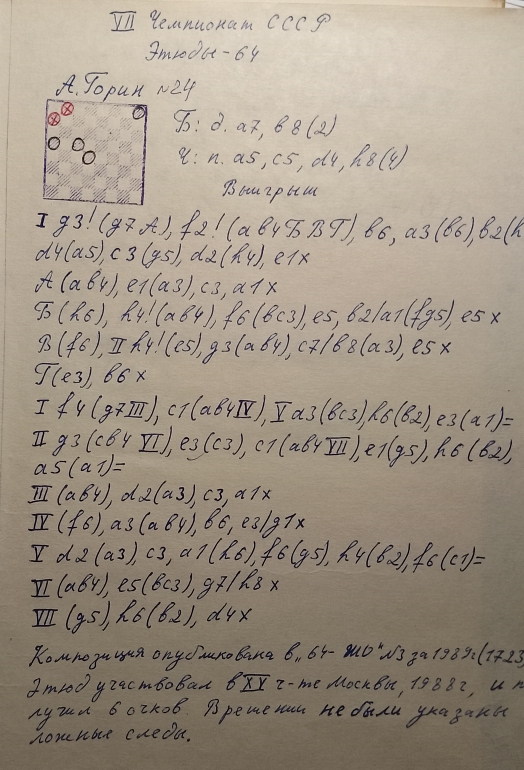 VII Чемпионат СССР
Этюды-64
А. Горин №24
Б: д. а7, в8(2)
Ч: п. а5, с5, d4, h8(4)
Выигрыш
I g3! (g7 А), f2! (ав4 Б В Г), в6, а3(в6), в2(h
d4(а5), с3(g5), d2(h4), е1х
А(ав4), е1(а3), с3, а1х
Б(h6), h4!(ав4), f6(вс3), е5, в2/а1(fg5), е5х
В(f6), II h4!(е5), g3(ав4), с7/в8(а3), е5х
Г(е3), в6х
I f4(g7 III), с1(ав4 IV), V а3(вс3), h6(в2), е3(а1)=
II g3(св4 VI), е3(с3), с1(ав4 VII), е1(g5), h6(в2),
а5(а1)=
III (ав4), d2(а3), с3, а1х
IV (f6), а3(ав4), в6, е3/g1х
V d2(а3), с3, а1(h6), f6(g5), h4(в2), f6(с1)=
VI (ав4), е5(вс3), g7/h8х
VII (g5), h6(в2), d4х
Композиция опубликована в „64-ШО" №3 за 1989г(1723
Этюд участвовал в XV ч-те Москвы, 1988г, и п
лучил 6 очков. В решении не были указаны
ложные следы.